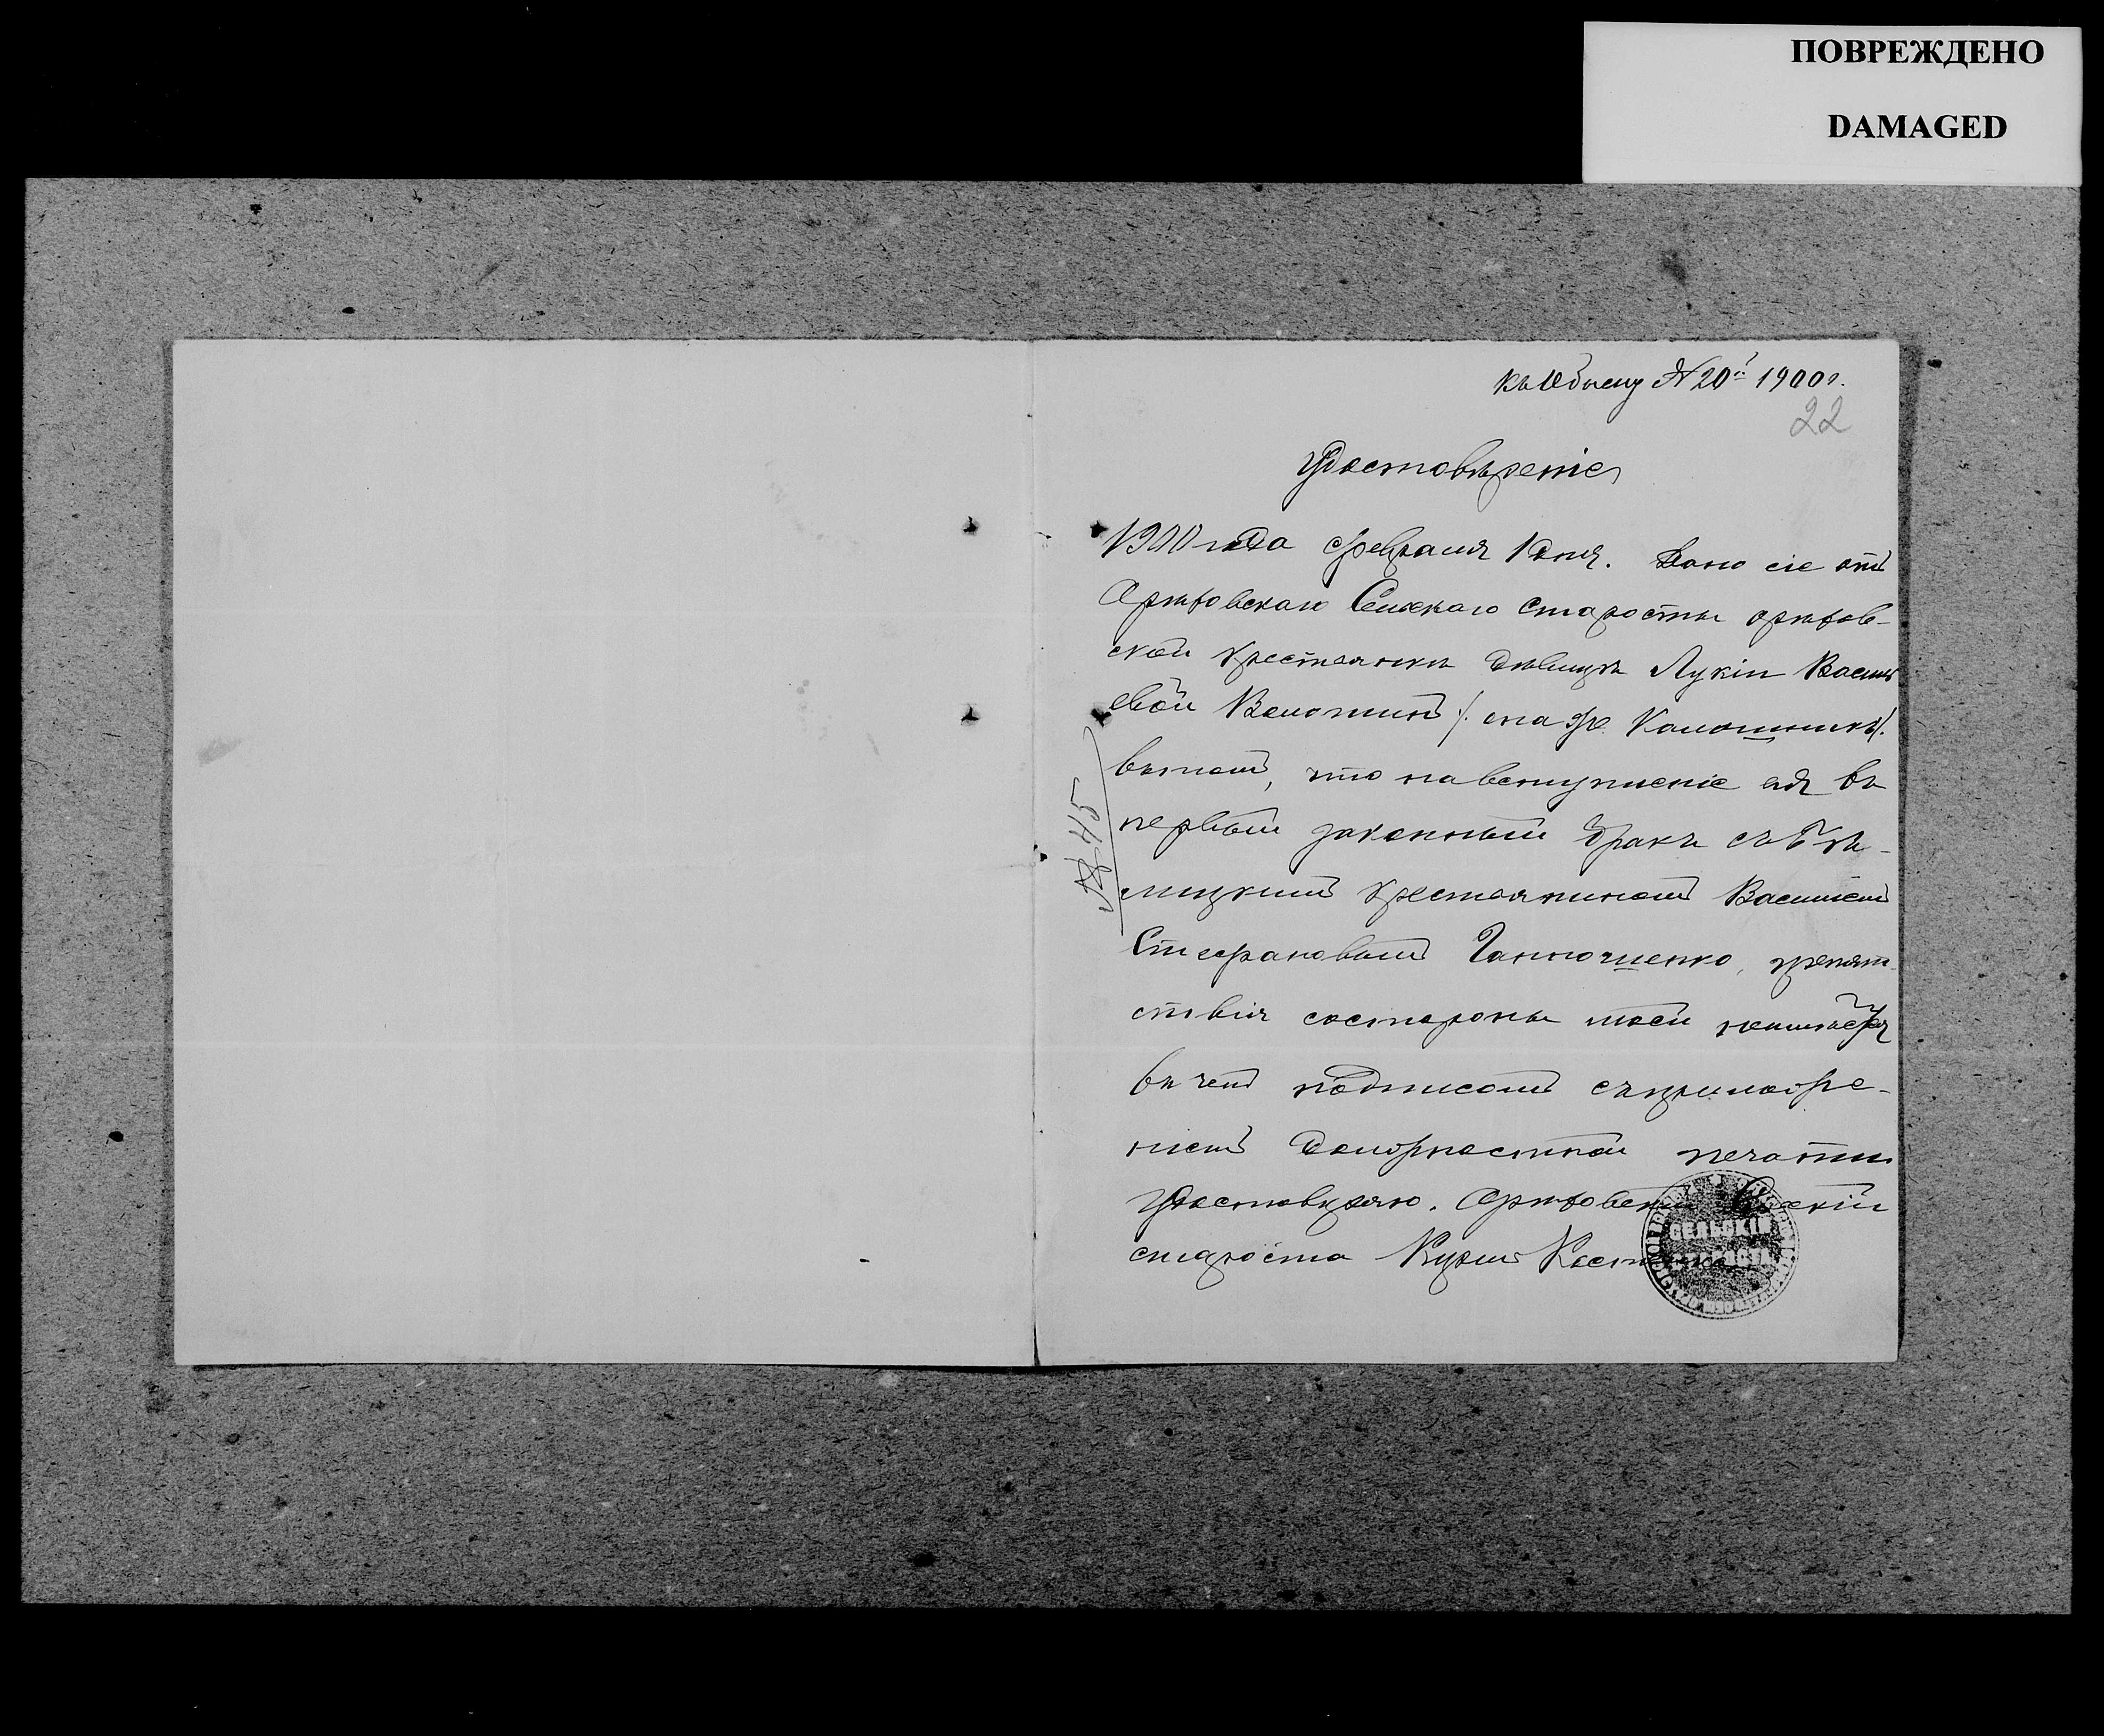 ПОВРЕЖДЕНО
DAMAGED
къ Обыску № 20й 1900 г.
22
Удостовѣреніе
1900 года февраля 1 дня. Дано сіе отъ
Орѣховскаго Сельскаго старосты орѣхов-
ской крестьянкѣ дѣвицѣ Лукіи Василь
евой Волошинъ /: она же Калошникъ/:
въ томъ, что на вступленіе ея въ
первый законный бракъ съ
крестьяниномъ Василіемъ
Стефановымъ Ганночченко, препят-
ствія состороны моей
въ чемъ подписомъ съприложе-
ніемъ должностной печати
удостовѣряю. Орѣховскій Сельскій
староста Кузма
№ 45
СЕЛЬСКІЙ